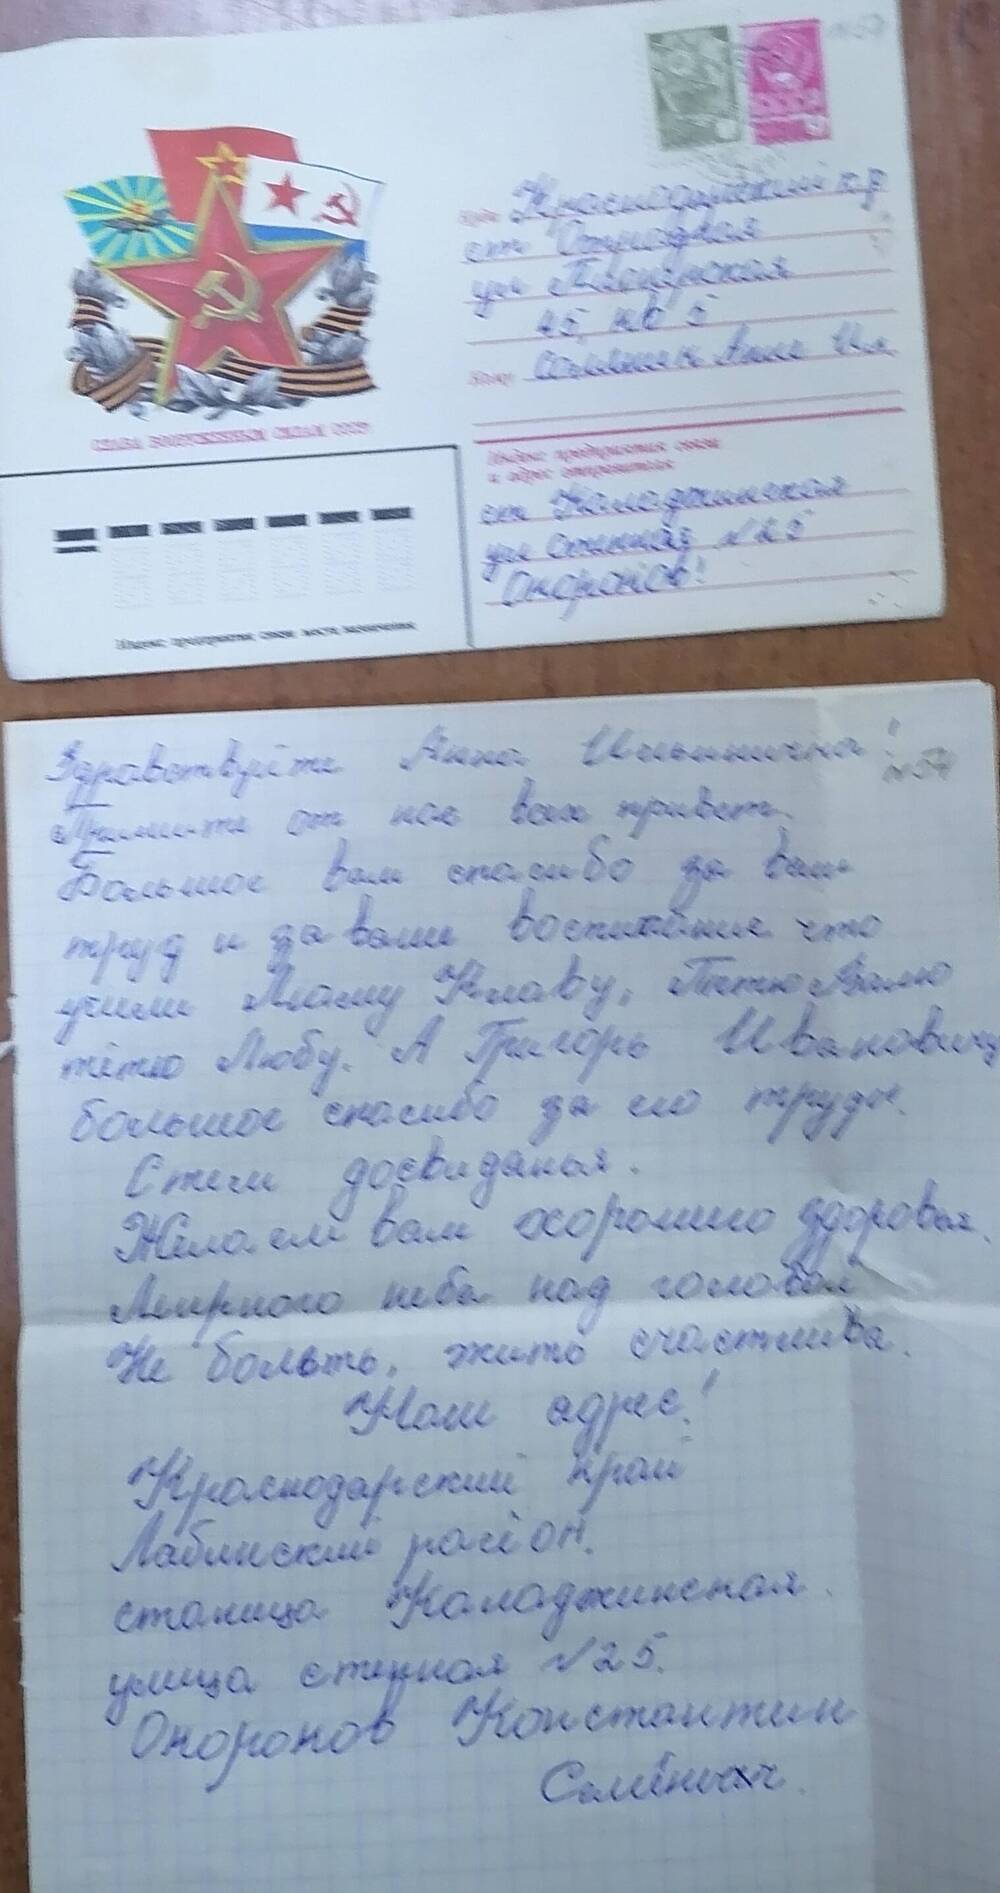 №57
СССР
СЛАВА ВООРУЖЕННЫМ СИЛАМ СССР
Куда Краснодарский кр
ст Отрадная
ул Пионерская
45, кв 5
Кому Анне Ил
Индекс предприятия связи
и адрес отправителя
ст Каладжинская
ул Степная №25
Оноронов!
Индекс предприятия связи места назначения
Здравствуйте Анна Ильинична!
№57
Примите от нас всех привет.
Большое вам спасибо за ваш
труд и за ваше воспитание что
учили Маму Клаву, Тётю Валю
тётю Любу. А Григорь Ивановичу
большое спасибо за его труды.
Стем досвиданья.
Желаем вам охорошго здоровья.
Мирного неба над головой
Не болеть, жить счастлива.
Наш адрес!
Краснодарский край
Лабинский район.
станица Каладжинская.
улица степная №25.
Оноронов Константин
Семёнович.